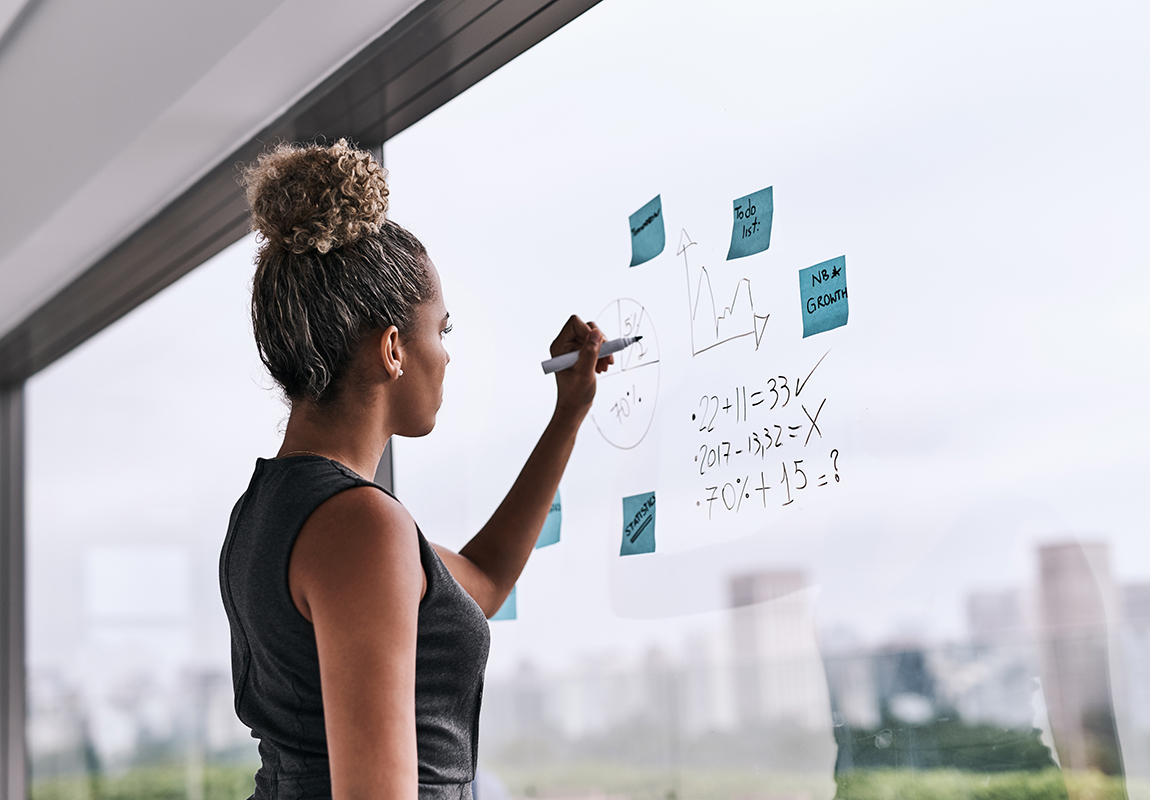 Tomorrow
To do
list:
NB★
GROWTH
5%
70%
•22+11=33✓
•2017-13,32=X
•70%+15=?
STATISTICS